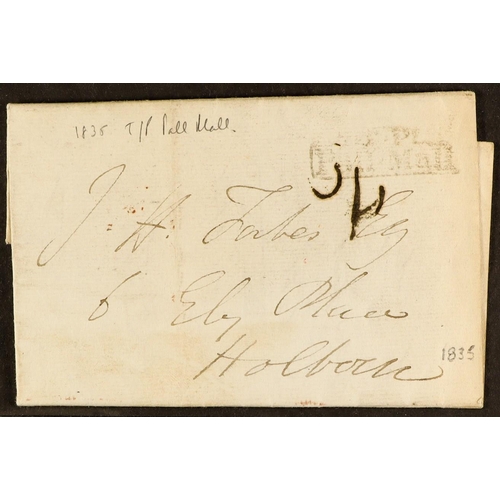 1835 T/P Pall Mall.
T.P
Pall Mall
J H. Forbes Esq
6 Ely Place
Holborn
1835